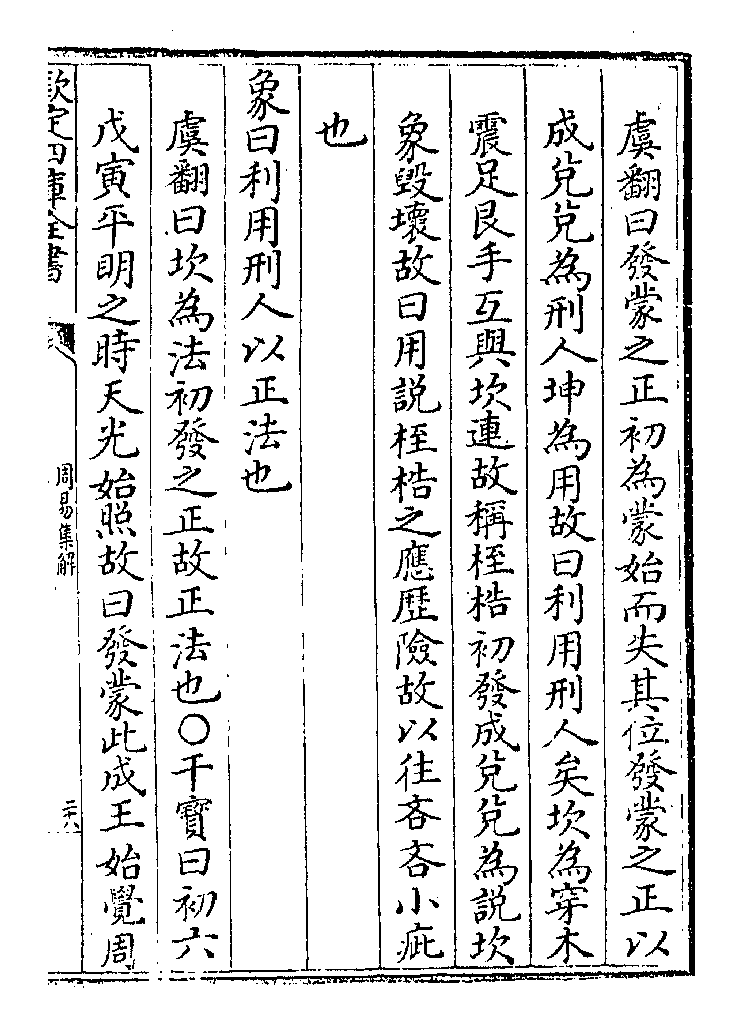 虞翻曰發蒙之正初為蒙始而失其位發蒙之正以
成兌兌為刑人坤為用故曰利用刑人矣坎為穿木
震足艮手互與坎連故稱桎梏初發成兌兌為説坎
象毀壞故曰用説桎梏之應歴險故以往吝吝小疵
也
象曰利用刑人以正法也
虞翻曰坎為法初發之正故正法也〇干寳曰初六
戊寅平明之時天光始照故曰發蒙此成王始覺周
欽定四庫全書
周易集解
二十八